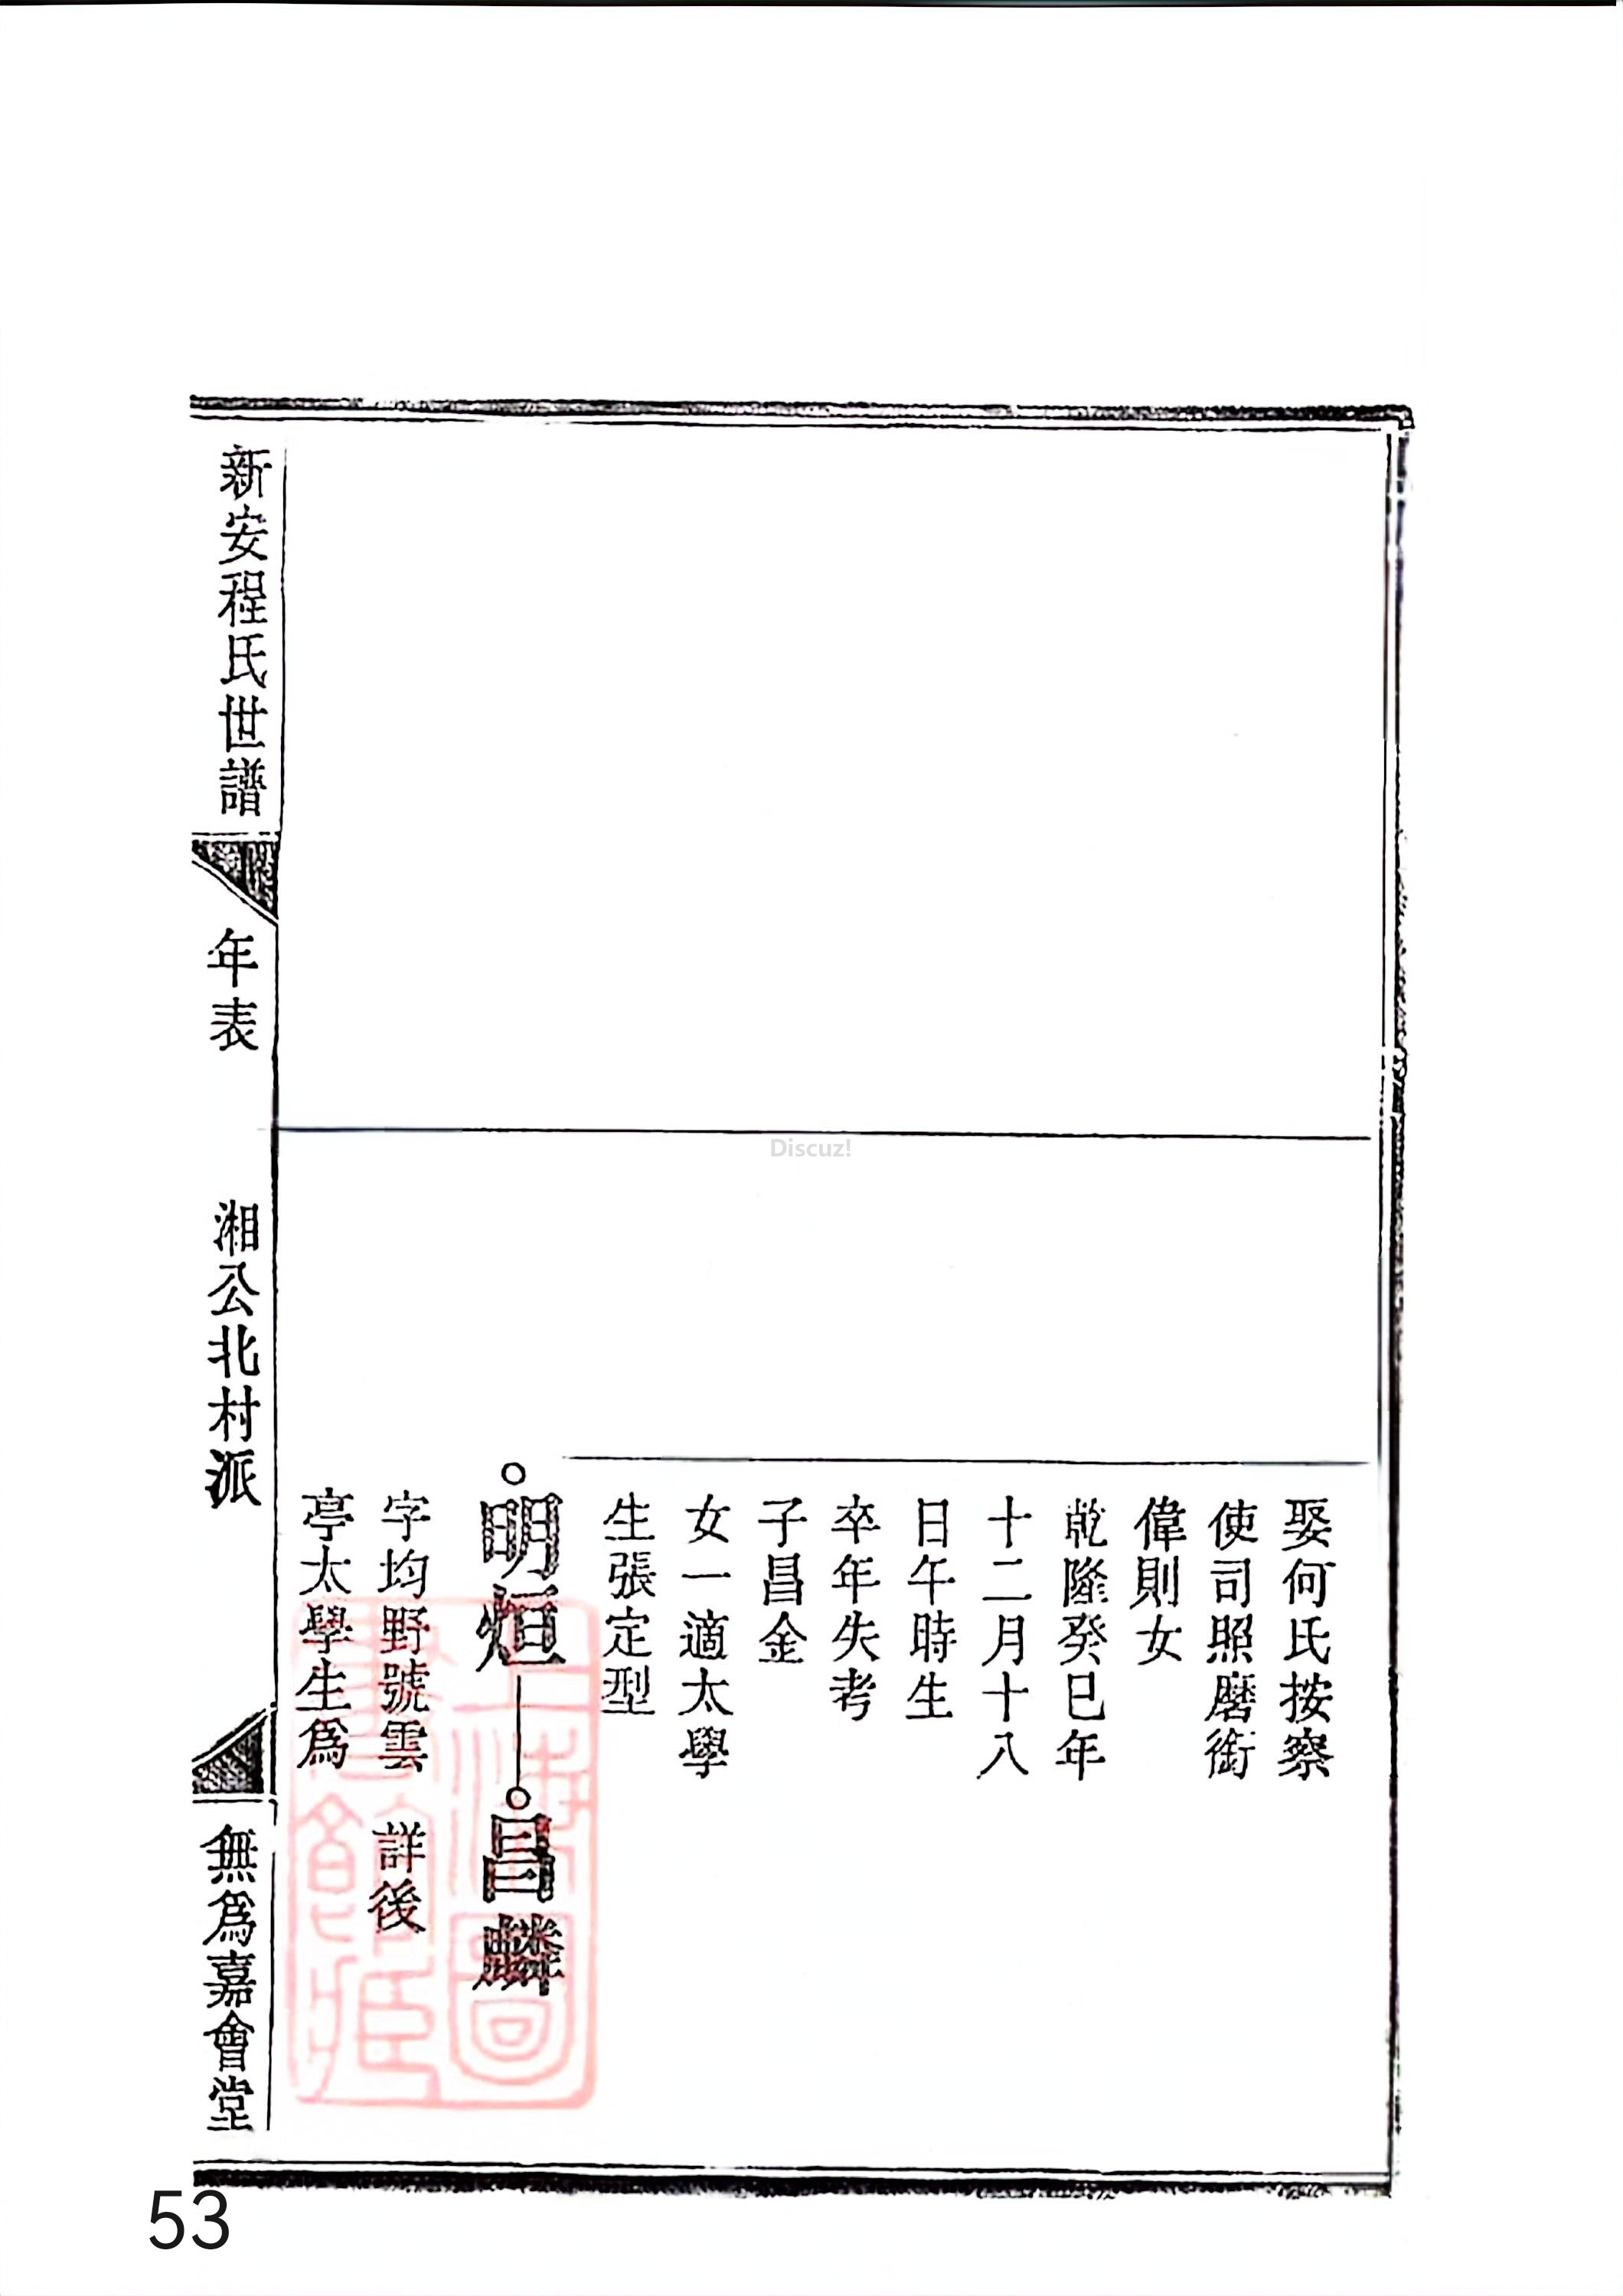 娶何氏按察
使司照磨銜
偉則女
乾隆癸巳年
十二月十八
日午時生
卒年失考
子昌金
女一適太學
生張定型
明烜
昌麟
字均野號雲
詳後
亭太學生爲
新安程氏世譜
年表
湘公北村派
無爲嘉會堂
上海圖
書館藏
Discuz!
53